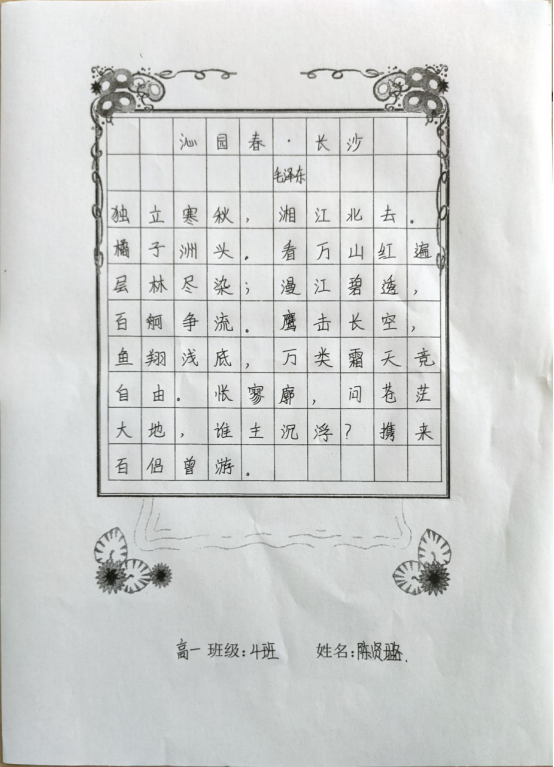 沁园春·长沙
毛泽东
独立寒秋，湘江北去。
橘子洲头。看万山红遍
层林尽染；漫江碧透，
百舸争流。鹰击长空，
鱼翔浅底，万类霜天竞
自由。怅寥廓，问苍茫
大地，谁主沉浮？携来
百侣曾游。
高一 班级：4班 姓名：陈贤